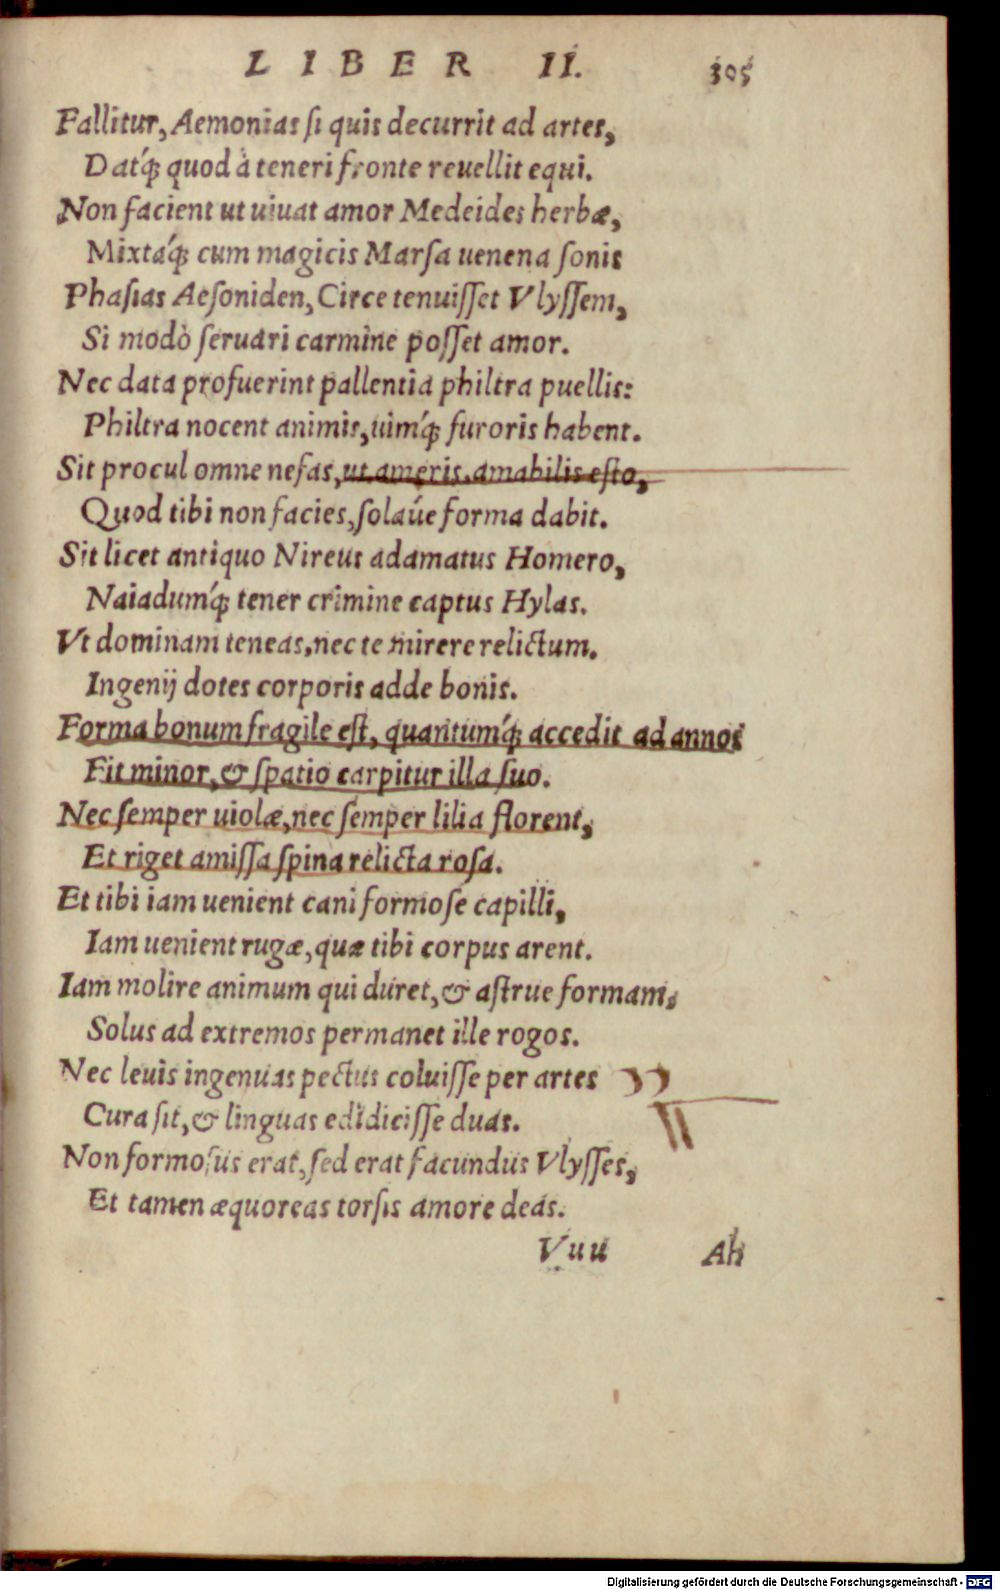 LIBER II. 305
Fallitur, Aemonias si quis decurrit ad artes,
Datq́; quod à teneri fronte reuellit equi.
Non facient ut uiuat amor Medeides herbæ,
Mixtaq́; cum magicis Marsa uenena sonis
Phasias Aesoniden, Circe tenuisset Vlyssem,
Si modò seruari carmine posset amor.
Nec data profuerint pallentia philtra puellis:
Philtra nocent animis, uimq́; furoris habent.
Sit procul omne nefas, ut ameris, amabilis esto,
Quod tibi non facies, solaúe forma dabit.
Sit licet antiquo Nireus adamatus Homero,
Naiadumq́; tener crimine captus Hylas.
Vt dominam teneas, nec te mirere relictum.
Ingenij dotes corporis adde bonis.
Forma bonum fragile est, quantumq́; accedit ad annos
Fit minor, & spatio carpitur illa suo.
Nec semper uiolæ, nec semper lilia florent,
Et riget amissa spina relicta rosa.
Et tibi iam uenient cani formose capilli,
Iam uenient rugæ, quæ tibi corpus arent.
Iam molire animum qui duret, & astrue formam,
Solus ad extremos permanet ille rogos.
Nec leuis ingenuas pectus coluisse per artes
Cura sit, & linguas edidicisse duas.
Non formosus erat, sed erat facundus Vlysses,
Et tamen æquoreas torsis amore deas.
Vuu Ah
Digitalisierung gefördert durch die Deutsche Forschungsgemeinschaft - DFG